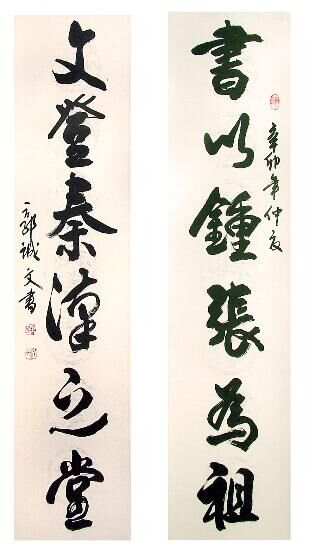 書以鍾張為祖
辛卯年仲夏
文登秦漢之堂
郭誠文書